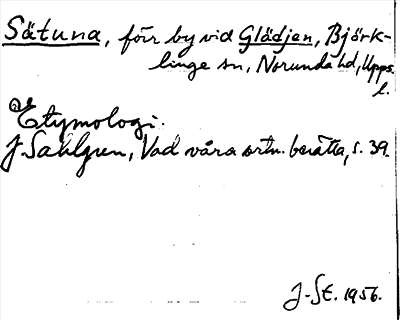 Sätuna, förr by vid Glädjen, Björk-
linge sn, Norunda hd, Upps.
l.
Etymologi.
J Sahlgren, Vad våra ortn. berätta, s. 39.
J-St. 1956.